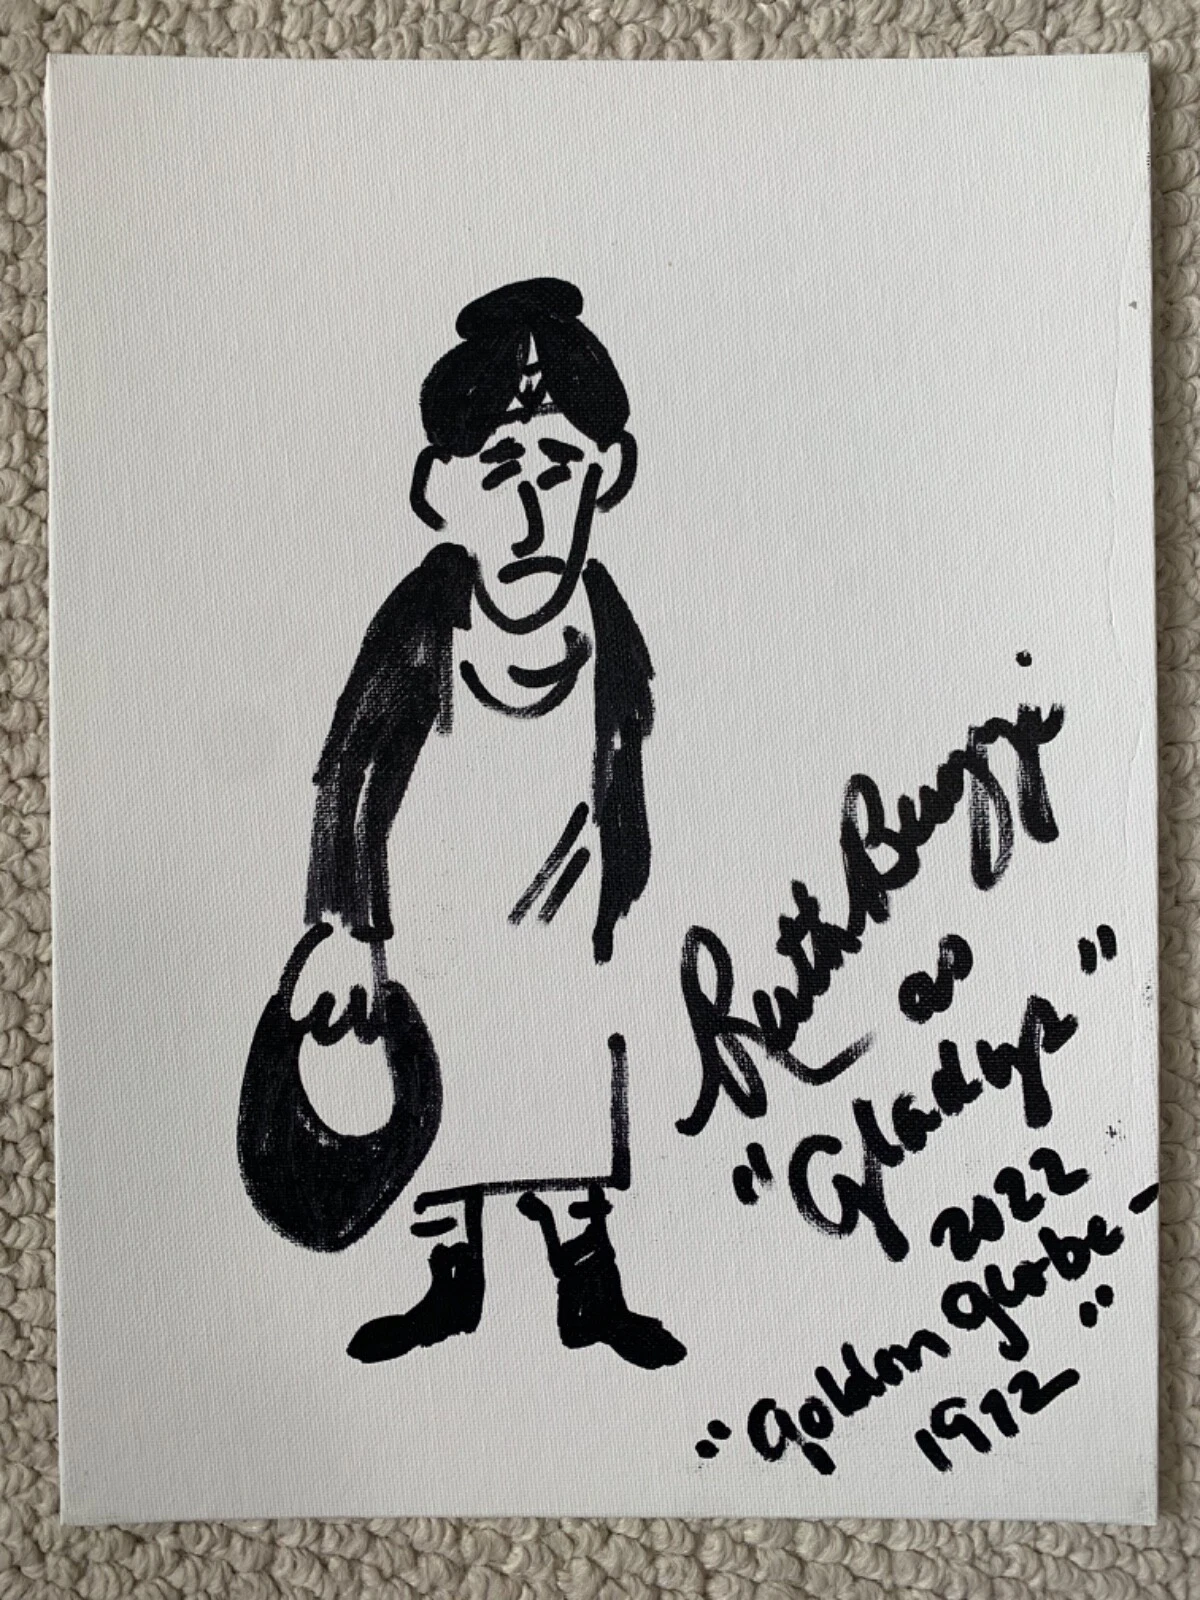 Ruth Buzzi
as
"Gladys"
2022
"Golden Globe-"
1972